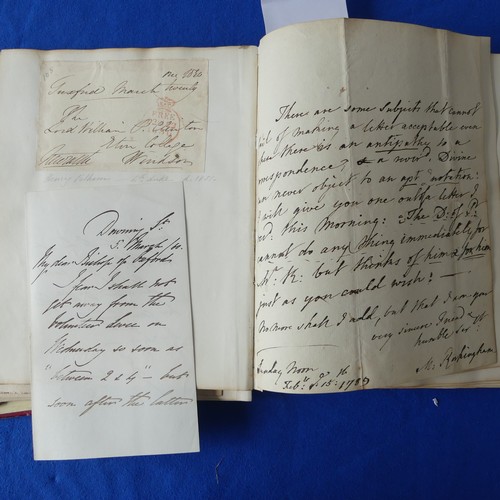 Tuxford March twenty
The
Lord William
Eton College
Newcastle Windsor
Downing St.
5 March
My dear Bishop of Oxford
I fear I shall not
get away from the
Levee on
Wednesday so soon as
"between 2 & 4" — but
soon after the latter
There are some subjects that cannot
of making a letter acceptable even
when there is an antipathy to a
correspondence; & a novel Divine
can never object to an apt quotation:
I will give you one out of a letter I
rd: this Morning: "The D: of P:
cannot do any thing immediately for
Mr. K: but thinks of him & for him
just as you could wish: —
no more shall I add, but that I am your
very sincere Friend &
humble Sert
Sunday Noon
Feby